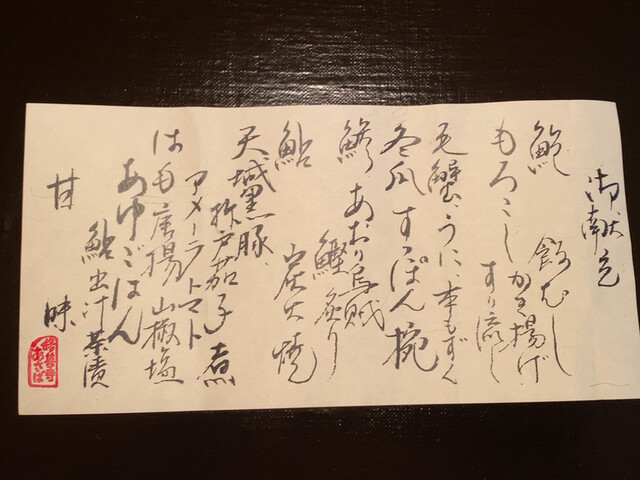 御献立
鮑 飯むし
もろこし かき揚げ
すり流し
毛蟹、うに、本もずく
冬瓜 すっぽん 椀
鯵 あおり烏賊
鰹 炙り
鮎 炭火焼
天城黒豚
弥戸茄子 煮
アメーラトマト
はも 唐揚 山椒塩
あゆごはん
鮎出汁茶漬
甘味
修善寺
あさば